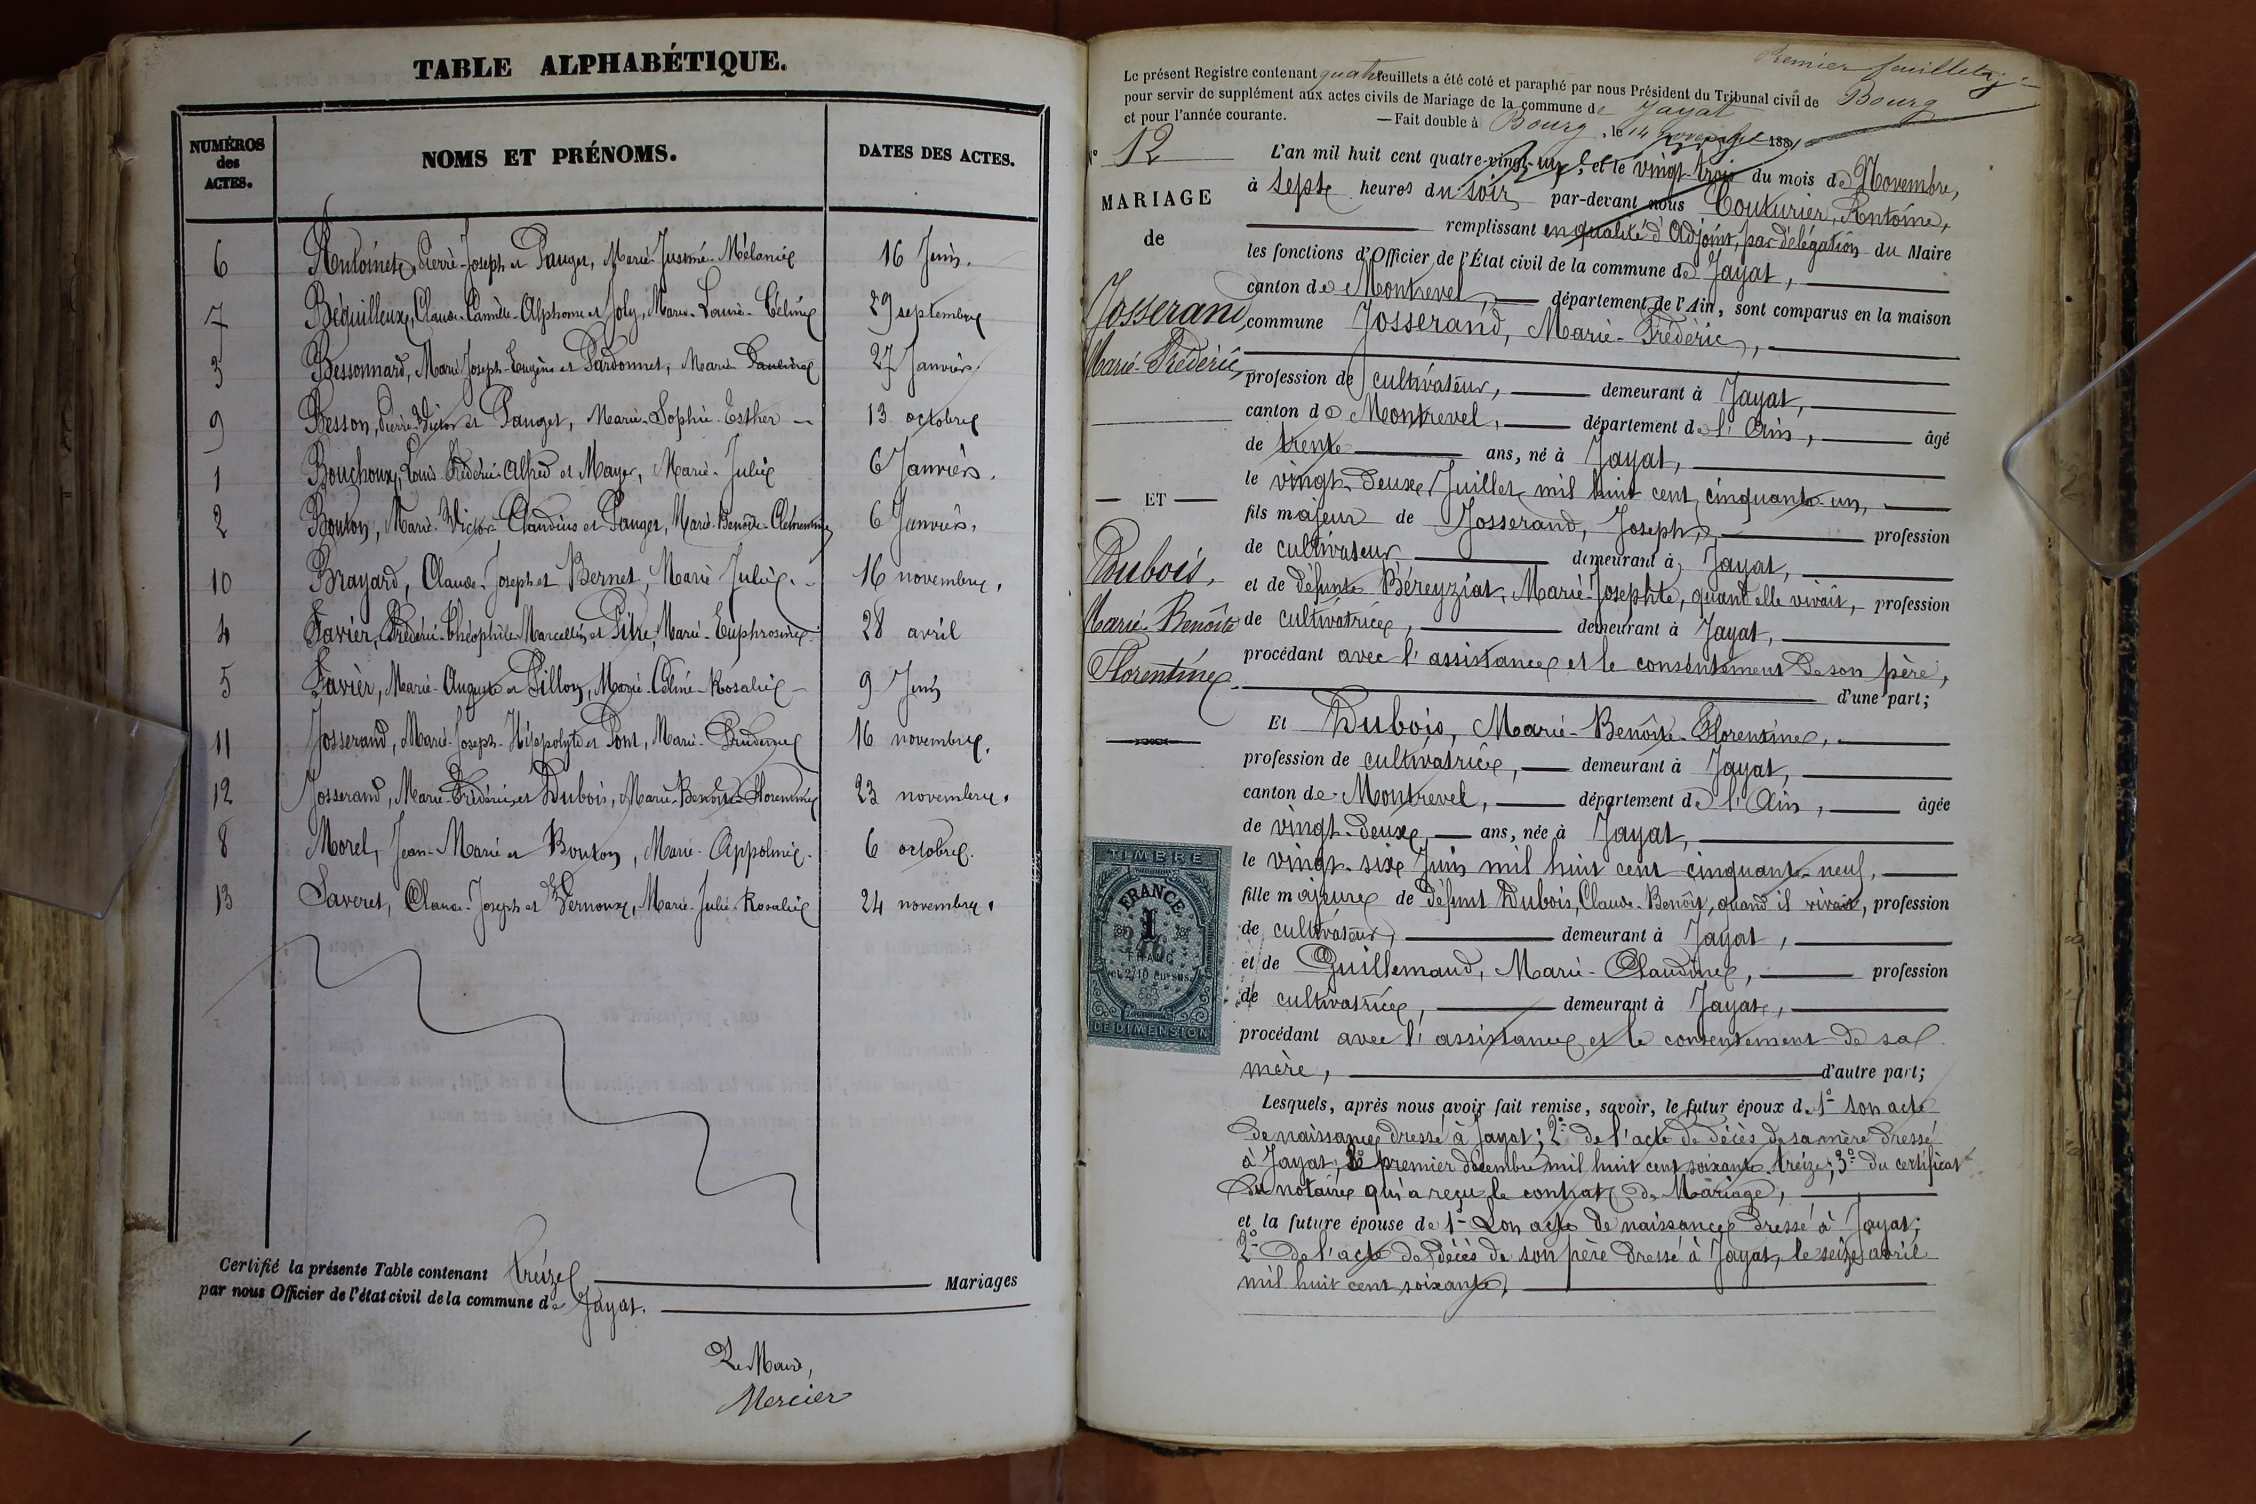 TABLE ALPHABÉTIQUE.
NUMÉROS des ACTES. NOMS ET PRÉNOMS. DATES DES ACTES.
6 Antoinet, Pierre-Joseph et Pauget, Marie-Jusmé-Mélanie 16 Juin.
7 Béquilleux, Claude-Camille-Alphonse et Joly, Marie-Louise-Céline 29 septembre
3 Bessonnard, Marie-Joseph-Eugène et Pardonnet, Marie-Pauline 27 Janvier.
9 Besson, Pierre-Victor et Pauget, Marie-Sophie-Esther 13 octobre
1 Bouchoux, Louis Frédéric-Alfred et Mayer, Marie-Julie 6 Janvier.
2 Bouton, Marie-Victor-Claudius et Pauget, Marie-Benoîte-Clémentine 6 Janvier.
10 Brayard, Claude-Joseph et Bernet, Marie Julie. 16 novembre.
4 Favier, Frédéric-Théophile Marcellin et Pitre, Marie-Euphrosine. 28 avril
5 Favier, Marie-Auguste et Pillon, Marie-Céline-Rosalie 9 Juin
11 Josserand, Marie-Joseph-Hippolyte et Pont, Marie-Prudence 16 novembre.
12 Josserand, Marie-Frédéric et Dubois, Marie-Benoîte-Florentine 23 novembre.
8 Morel, Jean-Marie et Bouton, Marie-Appolonie. 6 octobre.
13 Saveret, Claude-Joseph et Vernoux, Marie-Julie-Rosalie 24 novembre.
Certifié la présente Table contenant treize Mariages
par nous Officier de l'état civil de la commune de Jayat.
Le Maire,
Mercier
Premier feuillet
Le présent Registre contenant quatre feuillets a été coté et paraphé par nous Président du Tribunal civil de Bourg
pour servir de supplément aux actes civils de Mariage de la commune de Jayat
et pour l'année courante. — Fait double à Bourg, le 14 novembre 1881
N° 12
MARIAGE
de
Josserand,
Marie-Frédéric
— ET —
Dubois,
Marie-Benoîte
Florentine
L'an mil huit cent quatre-vingt-un, et le vingt-trois du mois de Novembre,
à sept heures du soir par-devant nous Couturier, Antoine,
remplissant en qualité d'Adjoint, par délégation du Maire
les fonctions d'Officier de l'État civil de la commune de Jayat,
canton de Montrevel, département de l'Ain, sont comparus en la maison
commune Josserand, Marie-Frédéric,
profession de cultivateur, demeurant à Jayat,
canton de Montrevel, département de l'Ain, âgé
de trente ans, né à Jayat,
le vingt-deux Juillet mil huit cent cinquante-un,
fils majeur de Josserand, Joseph, profession
de cultivateur demeurant à Jayat,
et de défunte Béreyziat, Marie-Josephte, quand elle vivait, profession
de cultivatrice, demeurant à Jayat,
procédant avec l'assistance et le consentement de son père,
d'une part;
Et Dubois, Marie-Benoîte-Florentine,
profession de cultivatrice, demeurant à Jayat,
canton de Montrevel, département de l'Ain, âgée
de vingt-deux ans, née à Jayat,
le vingt-six Juin mil huit cent cinquante-neuf,
fille majeure de défunt Dubois, Claude-Benoît, quand il vivait, profession
de cultivateur, demeurant à Jayat,
et de Guillemaud, Marie-Claudine, profession
de cultivatrice, demeurant à Jayat,
procédant avec l'assistance et le consentement de sa
mère, d'autre part;
Lesquels, après nous avoir fait remise, savoir, le futur époux de 1° son acte
de naissance dressé à Jayat; 2° de l'acte de décès de sa mère dressé
à Jayat, le premier décembre mil huit cent soixante-treize; 3° du certificat
du notaire qui a reçu le contrat de Mariage,
et la future épouse de 1° son acte de naissance dressé à Jayat;
2° de l'acte de décès de son père dressé à Jayat, le seize avril
mil huit cent soixante,
TIMBRE
FRANCE
1
FRANC
et 2/10 en sus
DE DIMENSION